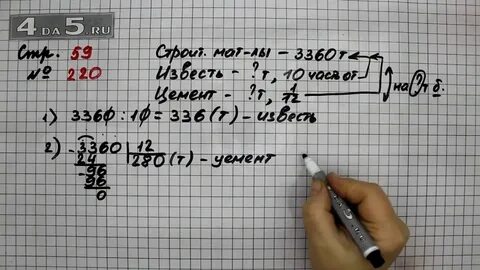 4DA5.RU
Стр. 59
№ 220
Строит. мат-лы – 3360 т
Известь – ? т, 10 част. от
Цемент – ? т, 1/12
на ? т б.
1) 3360 : 10 = 336 (т) – известь
2) 3360 | 12
24 | 280 (т) – цемент
96
96
0